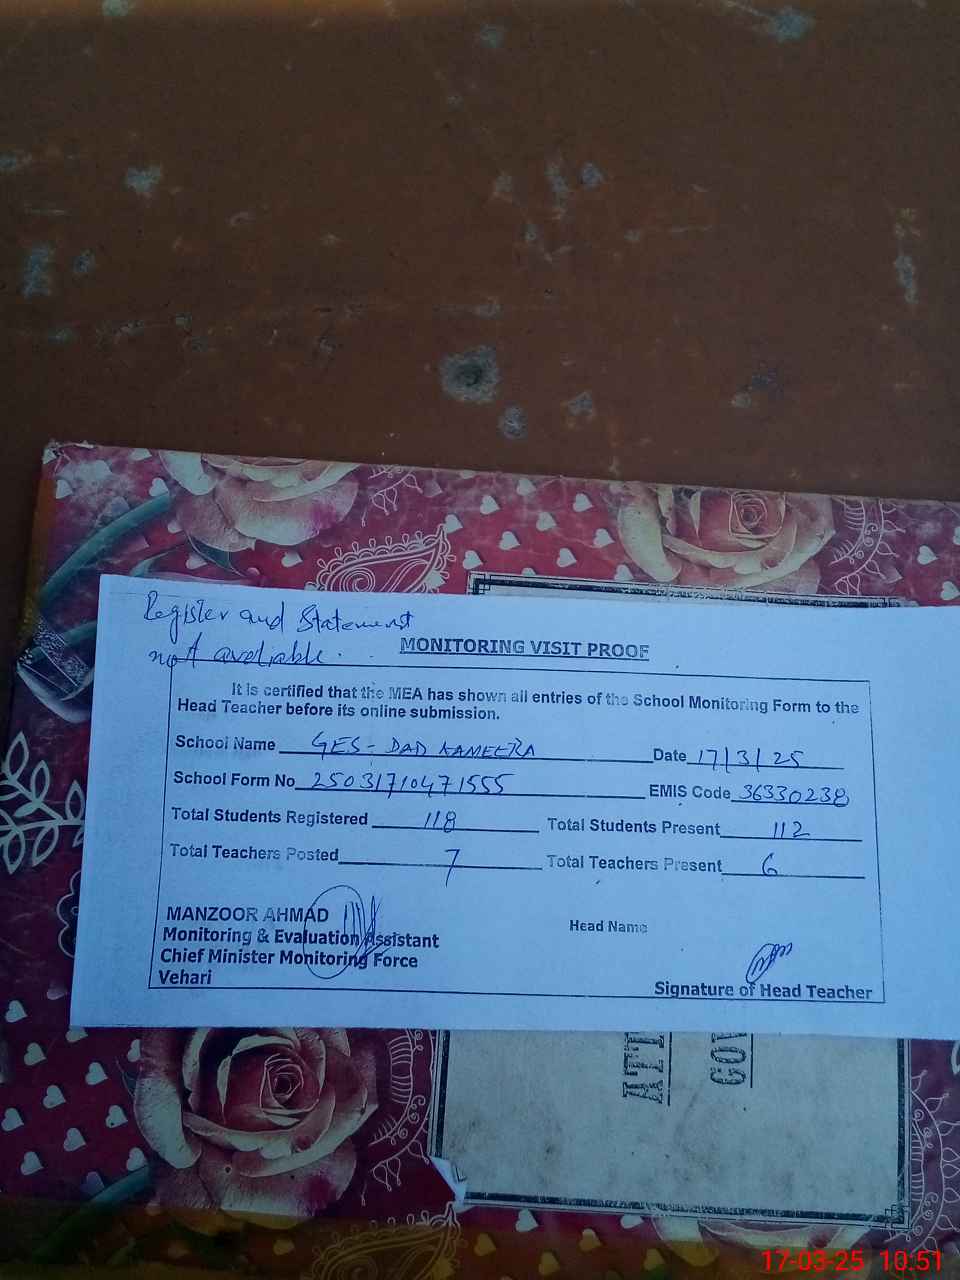 Register and Statement
not avaliable.
MONITORING VISIT PROOF
It is certified that the MEA has shown all entries of the School Monitoring Form to the
Head Teacher before its online submission.
School Name GES - DAD KAMEERA Date 17/3/25
School Form No 25031710471555 EMIS Code 36330238
Total Students Registered 118 Total Students Present 112
Total Teachers Posted 7 Total Teachers Present 6
MANZOOR AHMAD
Monitoring & Evaluation Assistant
Chief Minister Monitoring Force
Vehari
Head Name
Signature of Head Teacher
17-03-25 10:51